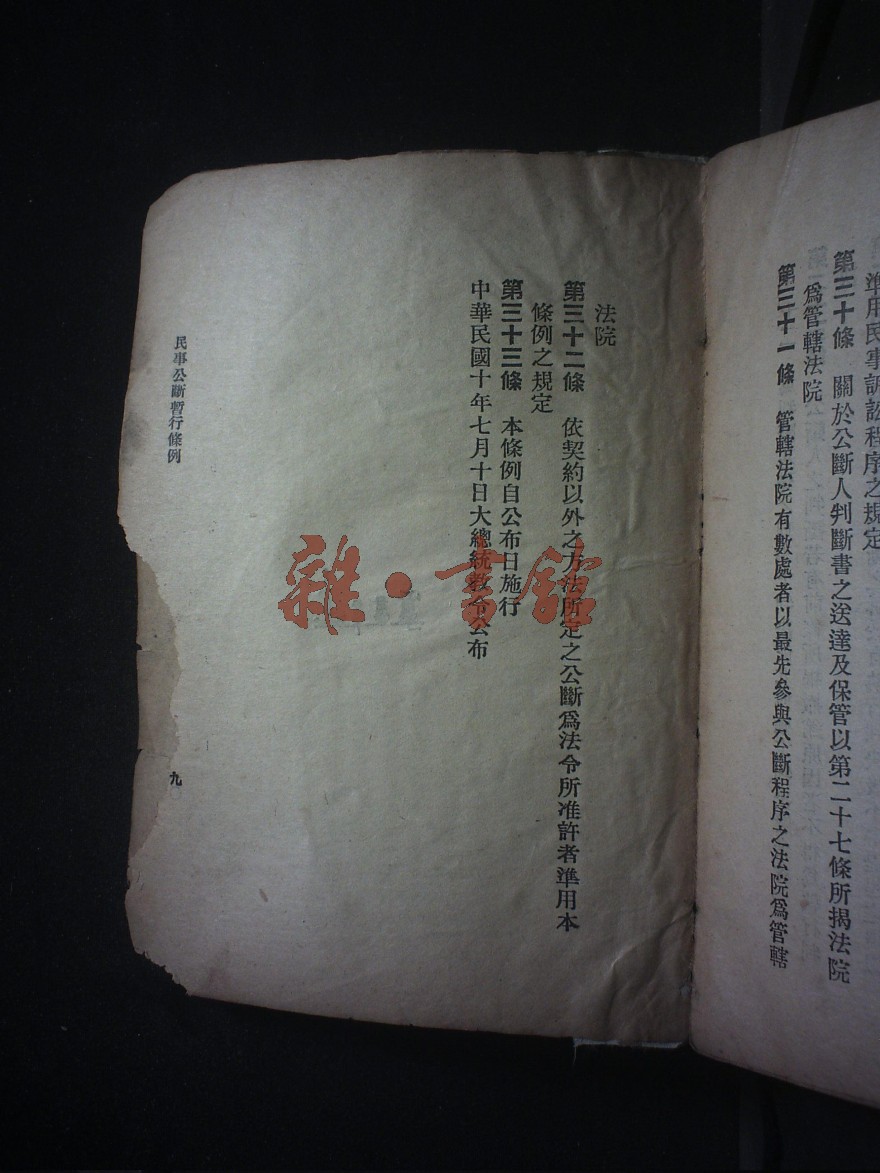 準用民事訴訟程序之規定
第三十條　關於公斷人判斷書之送達及保管以第二十七條所揭法院
爲管轄法院
第三十一條　管轄法院有數處者以最先參與公斷程序之法院爲管轄
法院
第三十二條　依契約以外之方法所定之公斷爲法令所准許者準用本
條例之規定
第三十三條　本條例自公布日施行
中華民國十年七月十日大總統敎令公布
民事公斷暫行條例
九
雜·書館